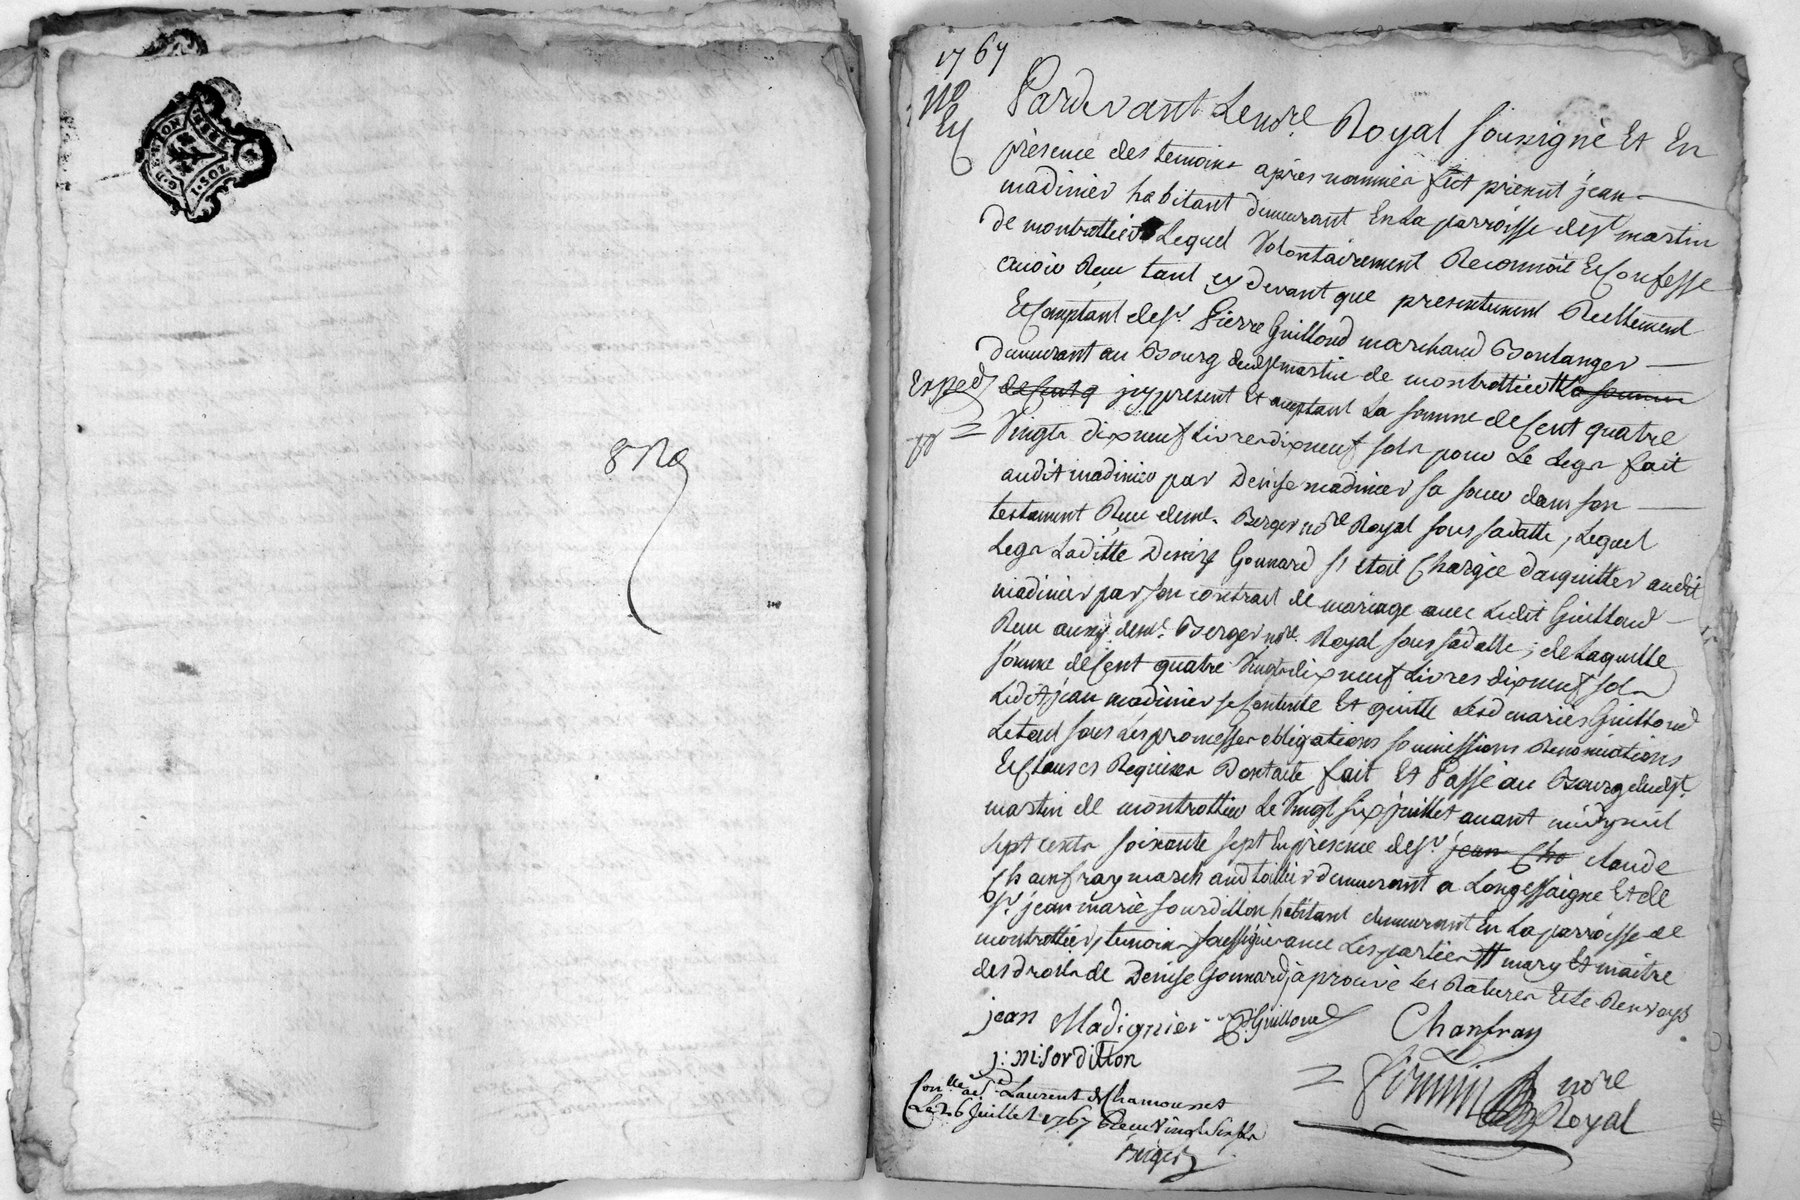 G. D. LYON
1767
Pardevant Le nore Royal soussigné Et En
présence des temoins après nommés fut présent jean
madinier habitant demeurant En La parroisse de st martin
de montrottier Lequel Volontairement Reconnoit Et Confesse
avoir Reçu tant cy devant que presentement Reellement
Et Comptant de sr. Pierre Guilloud marchand Boulanger
demeurant au Bourg dudt st martin de montrottier # La somme
Exped
de Cent q icy present Et acceptant La somme de Cent quatre
Vingts dix neuf Livres dix neuf sols pour Le Legs fait
audit madinier par Denise madinier sa soeur dans son
testament Reçu de me. Berger nore Royal sous sa datte, Lequel
Legs Laditte Denise Gonnard s'etoit Chargée d'acquitter audit
madinier par son contract de mariage avec Ledit Guilloud
Reçu aussy de me. Berger nore. Royal sous sa datte; de Laquelle
somme de Cent quatre Vingts dix neuf Livres dix neuf sols
Ledit jean madinier se Contente Et quitte Lesd mariés Guilloud
Le tout sous Les promesses obligations soumissions Renonciations
Et Clauses Requises Dont acte fait Et Passé au Bourg dudt st.
martin de montrottier Le Vingt six juillet avant midy mil
sept cents soixante sept En présence de sr. jean Cha claude
Chanfray marchand toillier demeurant a Longessaigne Et de
sr. jean marie sourdillon habitant demeurant En La parroisse de
montrottier, temoins soussignés avec Les parties # mary Et maitre
des droits de Denise Gonnard, aprouvé Les Ratures Et Le Renvoys
jean Madignier P. Guilloud Chanfray
j: m: sordillon
Firmin nore
Royal
Conlle a St Laurent de Chamousset
Le 26 Juillet 1767 Reçu Vingt six sols
Berger